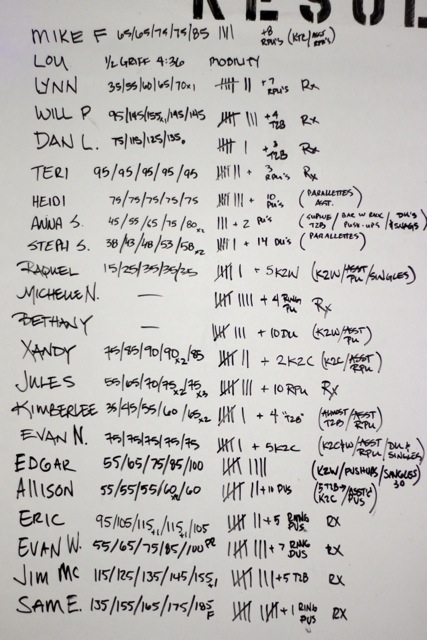 RESUL
MIKE F 65/65/75/75/85 III +8 RPU'S (K2C/ASST RPU'S)
LOU 1/2 GRIFF 4:36 MOBILITY
LYNN 35/55/60/65/70x1 IIII II +7 RPU'S Rx
WILL P. 95/145/155x1/145/145 IIII III +4 T2B Rx
DAN L. 75/115/125/135 IIII I +3 T2B Rx
TERI 95/95/95/95/95 IIII II + 3 RPU'S Rx
HEIDI 75/75/75/75/75 IIII III + 10 DU'S (PARALLETTES ASST.
ANNA S. 45/55/65/75/80x1 III + 2 PU'S (SUPINE T2B / BAR W RACK PUSH-UPS / DU'S
STEPH S. 38/43/48/53/58x2 IIII I + 14 DU'S (PARALLETTES)
RAQUEL 15/25/35/35/35 IIII I + 5 K2W (K2W/ASST PU/SINGLES)
MICHELLE N. — IIII IIII + 4 RING PU Rx
BETHANY — IIII III + 10 DU (K2W/ASST PU)
XANDY 75/85/90/90x2/85 IIII II + 2 K2C (K2C/ASST RPU)
JULES 55/65/70/75x2/75x3 IIII III + 10 RPU Rx
KIMBERLEE 35/45/55/60/65x2 IIII I + 4 "T2B" (ALMOST T2B/ASST RPU)
EVAN N. 75/75/75/75/75 IIII I + 5 K2C (K2C+W/ASST RPU/DU + SINGLES)
EDGAR 55/65/75/85/100 IIII IIII (K2W/PUSHUPS/SINGLES) 30
ALLISON 55/55/55/60x2/60 IIII II + 10 DUS (5 T2B→ K2C / ASST PUS)
ERIC 95/105/115+1/115+1/105 IIII II + 5 RING PUS RX
EVAN W. 55/65/75/85/100 PR IIII III + 7 RING PUS RX
JIM MC 115/125/135/145/155+1 IIII III + 5 T2B RX
SAM E. 135/155/165/175/185F IIII IIII + 1 RING PUS RX